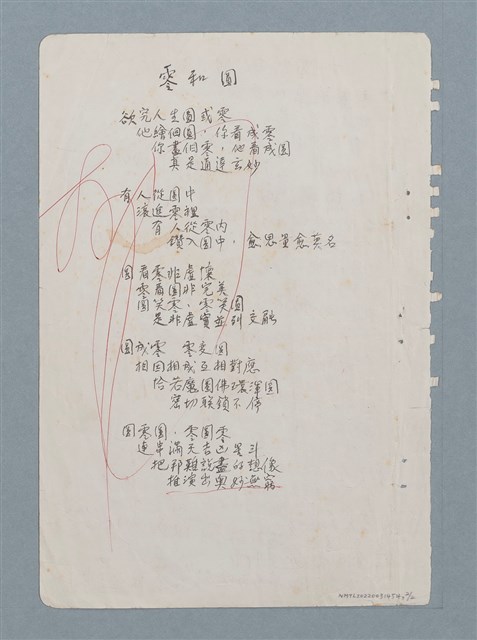 零和圓
欲究人生圓或零
他繪個圓，你看成零
你畫個零，他看成圓
真是通達玄妙
有人從圓中
滾進零裡
有人從零內
鑽入圓中，愈思量愈莫名
圓看零非虛懷
零看圓非完美
圓笑零，零笑圓
是非虛實並列交融
圓成零　零變圓
相因相成互相對應
恰若處圓佛環渾圓
密切聯鎖不停
圓零圓．零圓零
連串滿天吉凶星斗
把那難說盡的想像
推演出奧妙無窮